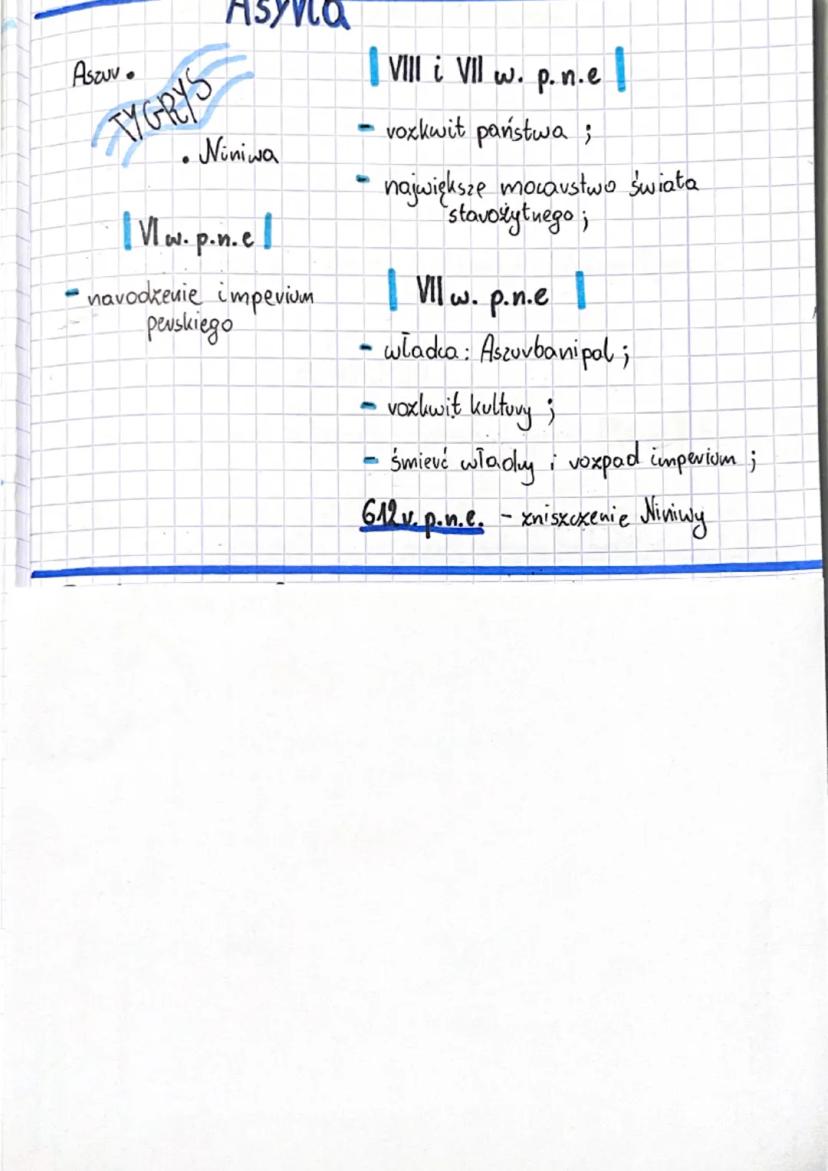 Asyria
Aszur •
TYGRYS
• Niniwa
VI w. p.n.e
- narodzenie imperium
perskiego
VIII i VII w. p.n.e
- rozkwit państwa ;
- największe mocarstwo świata
starożytnego ;
VII w. p.n.e
- władca : Aszurbanipal ;
- rozkwit kultury ;
- śmierć władcy i rozpad imperium ;
612 r. p.n.e. - zniszczenie Niniwy